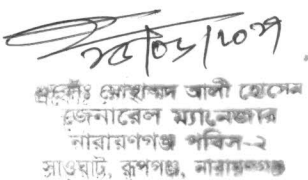 প্রকৌঃ মোহাম্মদ আলী হোসেন
জেনারেল ম্যানেজার
নারায়ণগঞ্জ পবিস-২
সাওঘাট, রূপগঞ্জ, নারায়ণগঞ্জ